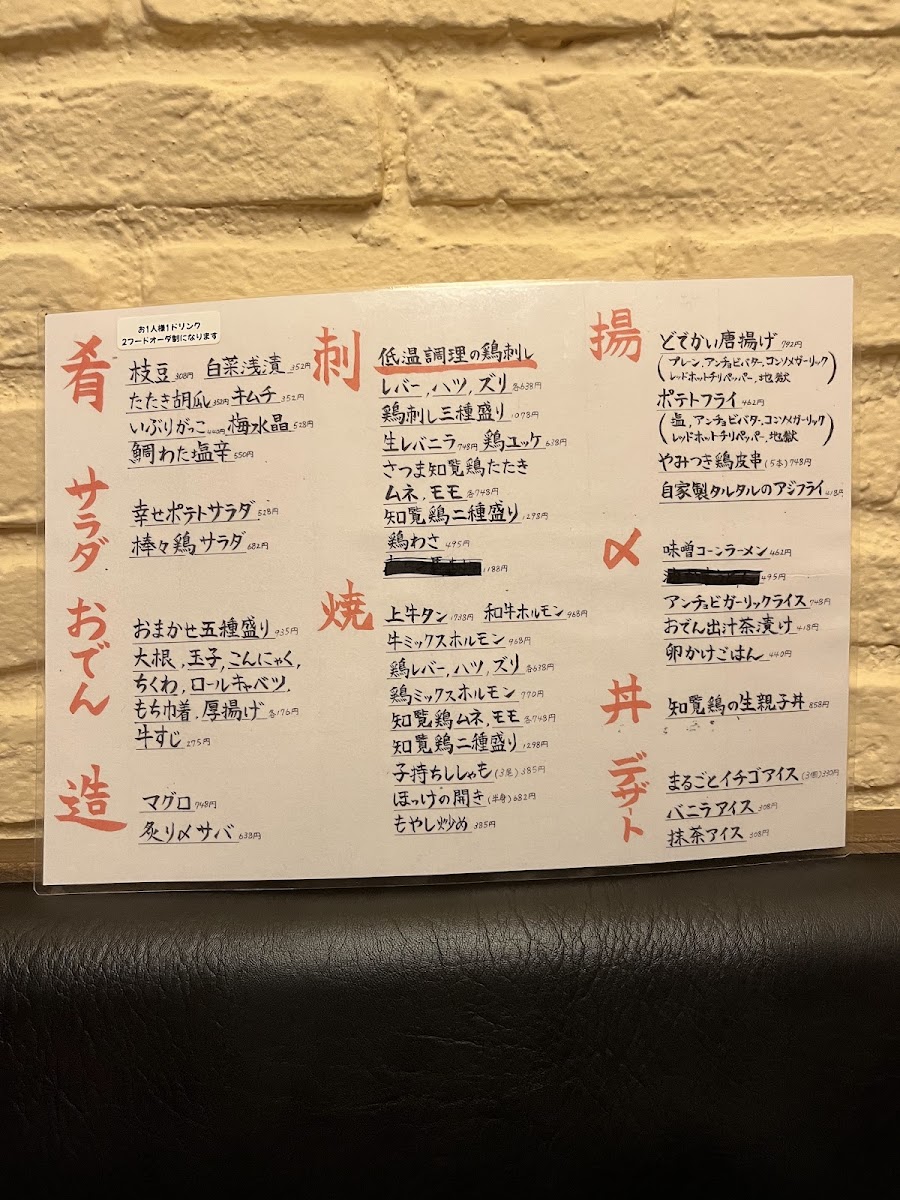 お1人様1ドリンク
2フードオーダ制になります
肴
枝豆 308円 白菜浅漬 352円
たたき胡瓜 352円 キムチ 352円
いぶりがっこ 440円 梅水晶 528円
鯛わた塩辛 550円
サラダ
幸せポテトサラダ 528円
棒々鶏サラダ 682円
おでん
おまかせ五種盛り 935円
大根、玉子、こんにゃく、
ちくわ、ロールキャベツ、
もち巾着、厚揚げ 各176円
牛すじ 275円
造
マグロ 748円
炙り〆サバ 638円
刺
低温調理の鶏刺し
レバー、ハツ、ズリ 各638円
鶏刺し三種盛り 1078円
生レバニラ 748円 鶏ユッケ 638円
さつま知覧鶏たたき
ムネ、モモ 各748円
知覧鶏二種盛り 1298円
鶏わさ 495円
1188円
焼
上牛タン 1738円 和牛ホルモン 968円
牛ミックスホルモン 968円
鶏レバー、ハツ、ズリ 各638円
鶏ミックスホルモン 770円
知覧鶏ムネ、モモ 各748円
知覧鶏二種盛り 1298円
子持ちししゃも (3尾) 385円
ほっけの開き (半身) 682円
もやし炒め 385円
揚
どでかい唐揚げ 792円
(プレーン、アンチョビバター、コンソメガーリック
レッドホットチリペッパー、地獄)
ポテトフライ 462円
(塩、アンチョビバター、コンソメガーリック
レッドホットチリペッパー、地獄)
やみつき鶏皮串 (5本) 748円
自家製タルタルのアジフライ 418円
〆
味噌コーンラーメン 462円
495円
アンチョビガーリックライス 748円
おでん出汁茶漬け 418円
卵かけごはん 440円
丼
知覧鶏の生親子丼 858円
デザート
まるごとイチゴアイス (3個) 330円
バニラアイス 308円
抹茶アイス 308円